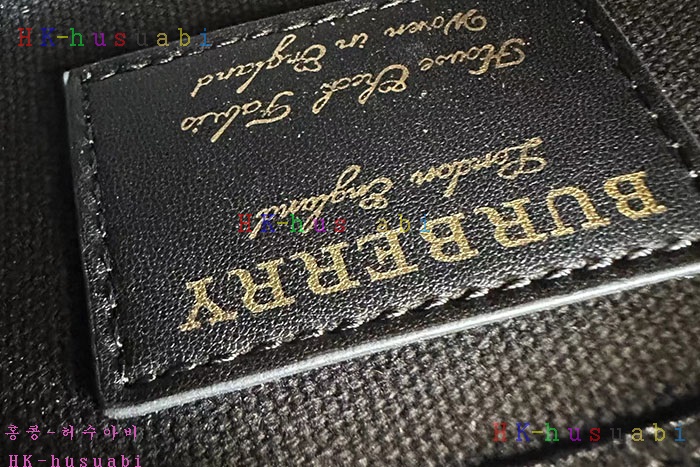 HK-husuabi
BURBERRY
London England
House Check Fabric
Woven in England
HK-husuabi
홍콩-허수아비
HK-husuabi
HK-husuabi